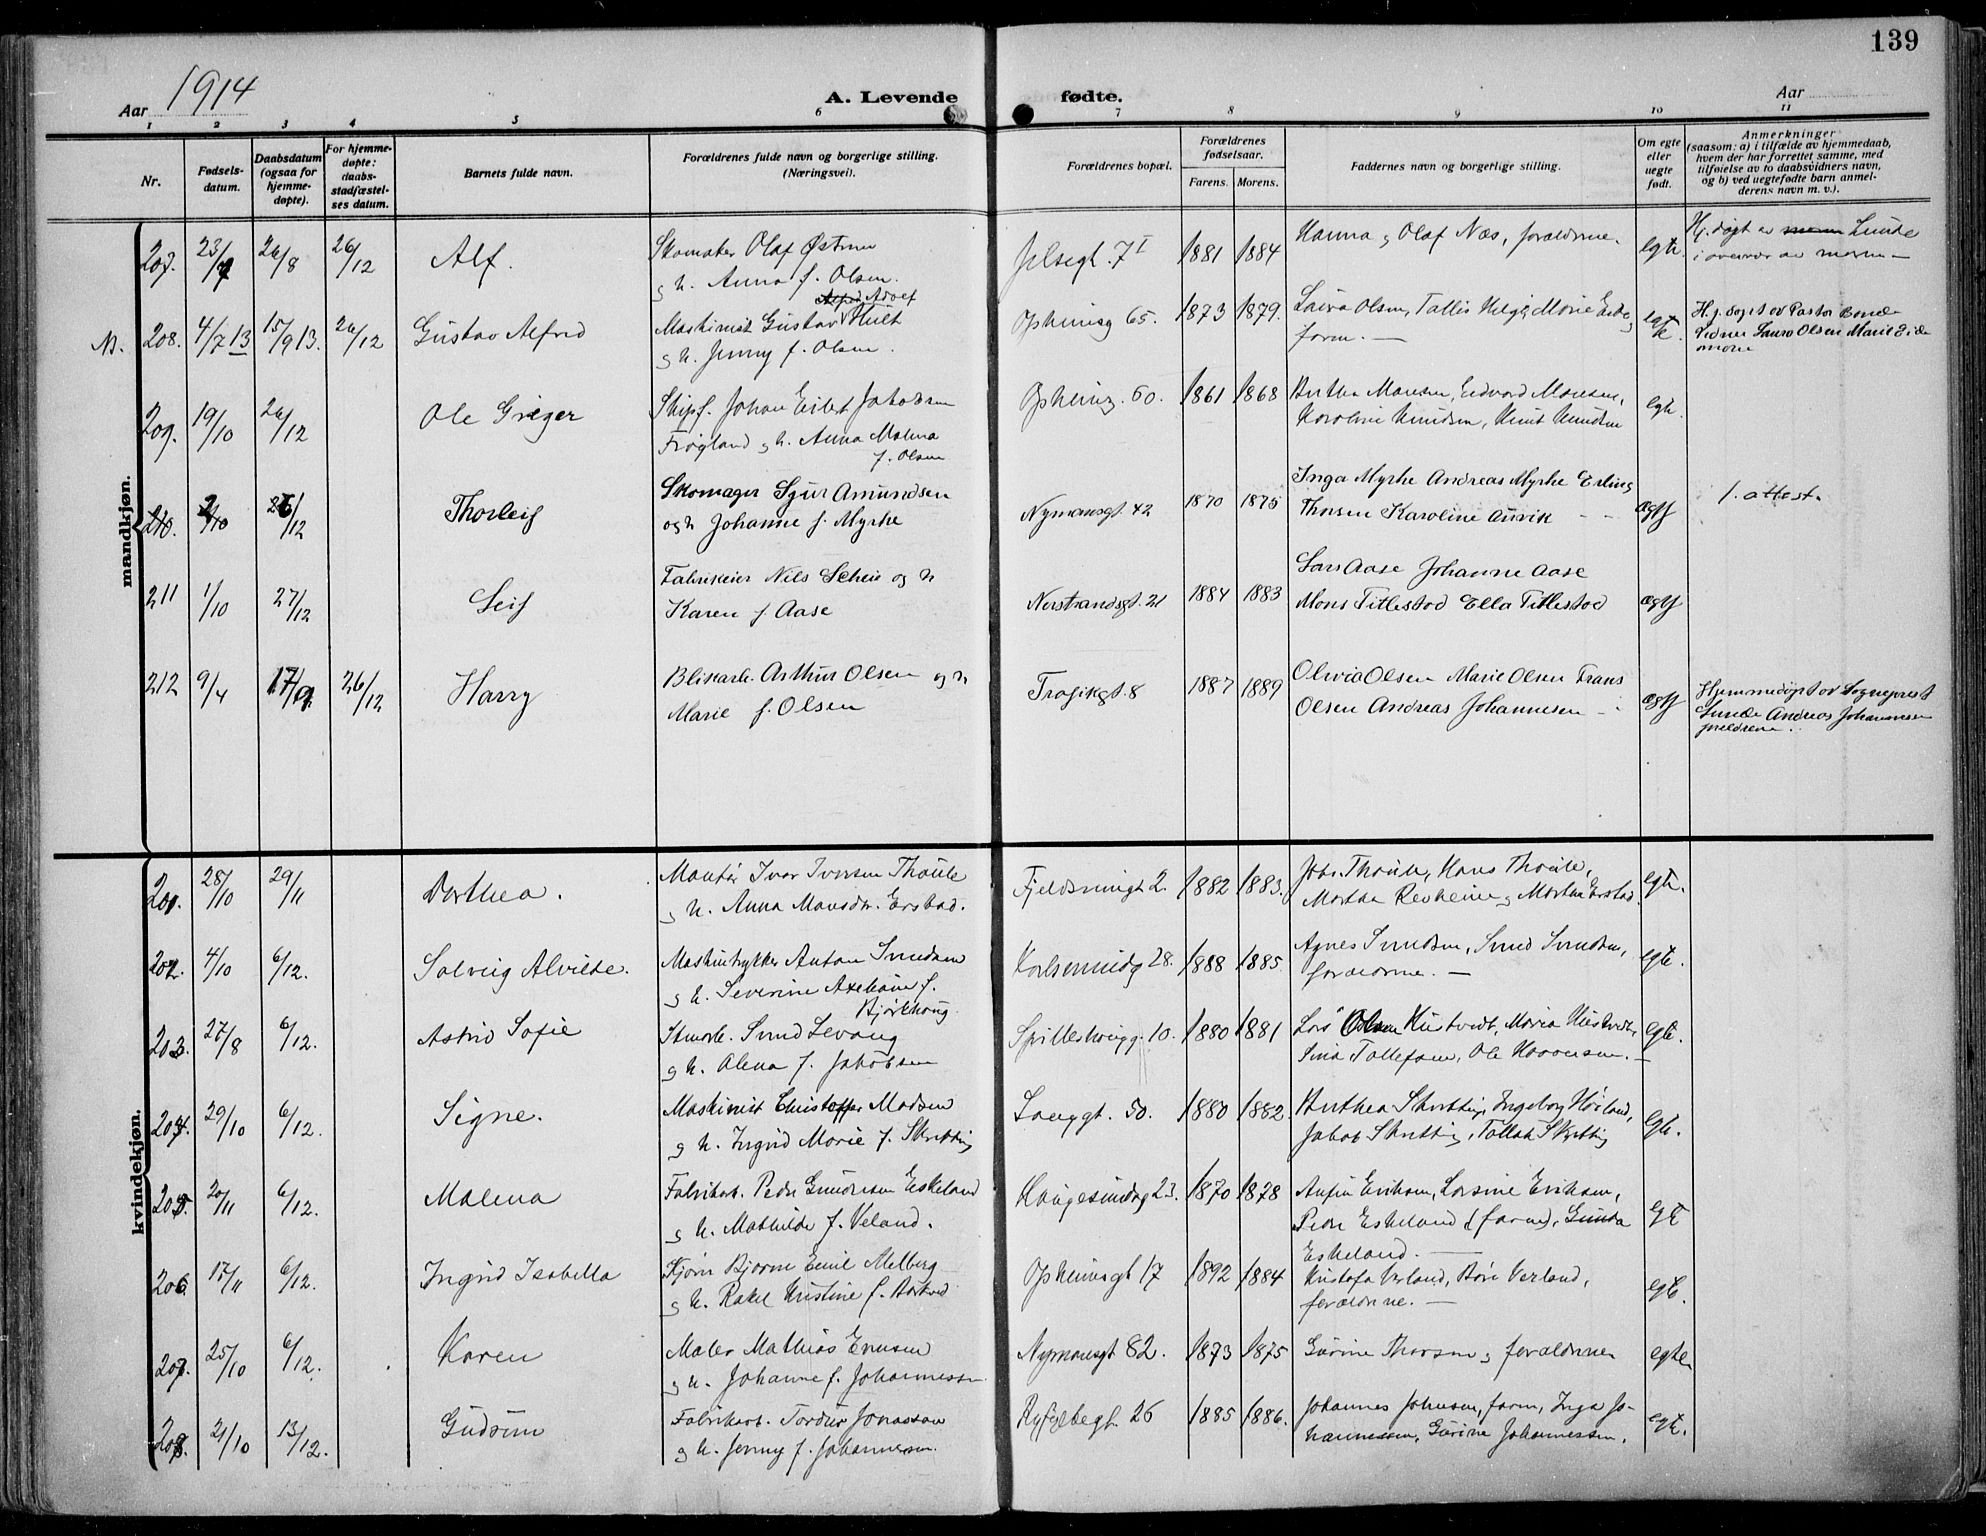 139
Aar 1914
A. Levende fødte.
Aar
1 2 3 4 5 6 7 8 9 10 11
Nr.
Fødsels-
datum.
Daabsdatum
(ogsaa for
hjemme-
døpte).
For hjemme-
døpte:
daabs-
stadfæstel-
ses datum.
Barnets fulde navn.
Forældrenes fulde navn og borgerlige stilling.
(Næringsvei).
Forældrenes bopæl.
Forældrenes
fødselsaar.
Farens. Morens.
Faddernes navn og borgerlige stilling.
Om egte
eller
uegte
født.
Anmerkninger
(saasom: a) i tilfælde av hjemmedaab,
hvem der har forrettet samme, med
tilføielse av to daabsvidners navn,
og b) ved uegtefødte barn anmel-
derens navn m. v.).
mandkjøn.
207. 23/7 26/8 26/12 Alf.
Skomaker Olaf Østrem
og h. Anna f. Olsen.
Jelsegt. 7 I 1881 1884
Hanna og Olaf Næs, forældrene.
egte.
Hj. døpt av Lunde
i overvær av moren —
N. 208. 4/7 13 15/9 13. 26/12 Gustav Alfred
Adolf
Maskinist Gustav Hult
og h. Jenny f. Olsen.
Opheimsg 65. 1873 1879.
Laura Olsen, Tallis Helge, Marie Eide
faren. —
egte.
Hj. døpt av Pastor
Vidner Laura Olsen Marie Eide
209. 19/10 26/12 Ole Greger
Skipsf. Johan Eilert Jakobsen
Frøgland og h. Anna Malena
f. Olsen
Opheimg. 60. 1861 1868
Berthe Monsen, Edvard Monsen,
Karoline Knudsen, Knut Knudsen
egte.
210. 2/10 26/12 Thorleif
Skomager Sjur Amundsen
og h Johanne f. Myrhe
Nymansgt. 42 1870 1875
Inga Myrhe Andreas Myrhe Erling
Thorsen Karoline Auvik
ægte
f. attest.
211 1/10 27/12 Leif
Fabrikeier Nils Scheie og h
Karen f Aase
Nerstrandsgt. 21 1884 1883
Lars Aase Johanne Aase
Mons Titlestad Ella Titlestad
ægte
212 9/4 17/9 26/12 Harry
Blikarb. Arthur Olsen og h
Marie f. Olsen
Trafikgt. 8 1887 1889
Olivia Olsen Marie Olsen Frans
Olsen Andreas Johannesen
ægte
Hjemmedøpt av Sogneprest
Lunde Andreas Johannesen
foreldrene.
kvindekjøn.
201. 28/10 29/11 Dorthea.
Montør Ivar Iversen Thoule
og h. Anna Monsdr. Erstad.
Fjeldsmingt 2. 1882 1883.
Johs. Thoule, Hans Thoule,
Martha Revheim og Martha Erstad.
egte.
202. 4/10 6/12. Solveig Alvilde.
Maskintrykker Anton Svendsen
og h. Severine Axeliane f.
Bjørkhaug.
Karlsmindeg 28. 1888 1885.
Agnes Svendsen, Svend Svendsen,
forældrene. —
egte.
203. 27/8 6/12. Astrid Sofie
Stuearb. Svend Levang
og h. Olena f. Jakobsen
Spilderhaugg. 10. 1880 1881
Lars Olsen Hustvedt, Maria Hustvedt,
Sina Tollefsen, Ole Haavorsen. —
egte.
204. 29/10 6/12. Signe.
Maskinist Christoffer Madsen
og h. Ingrid Marie f. Skretting
Langgt. 50. 1880 1882.
Berthea Skretting, Ingeborg Høiland,
Jakob Skretting, Tollak Skretting
egte.
205. 20/11 6/12. Malena
Fabrikarb. Peder Gundersen Eskeland
og h. Mathilde f. Veland.
Haugesundsg 23. 1870 1878
Anfin Eriksen, Larsine Eriksen,
Peder Eskeland (faren), Gunda
Eskeland. —
egte
206. 15/11 6/12. Ingrid Isabella
Kjører Bjarne Emil Melberg
og h. Rakel Kristine f. Borkvid
Opheimsgt 17 1892 1884
Kristofa Verland, Børe Verland,
forældrene. —
egte.
207. 25/10 6/12. Karen
Maler Mathias Evensen
og h. Johanne f. Johannessen.
Nymansgt 82. 1873 1875
Gurine Thorsen og forældrene
egte
208. 21/10 13/12. Gudrun
Fabrikarb. Tordur Jonassen
og h. Jenny f. Johannessen.
Ryfylkegt. 26 1885 1886.
Johannes Johnsen, faren, Inga Jo-
hannessen, Gurine Johannessen.
egte.